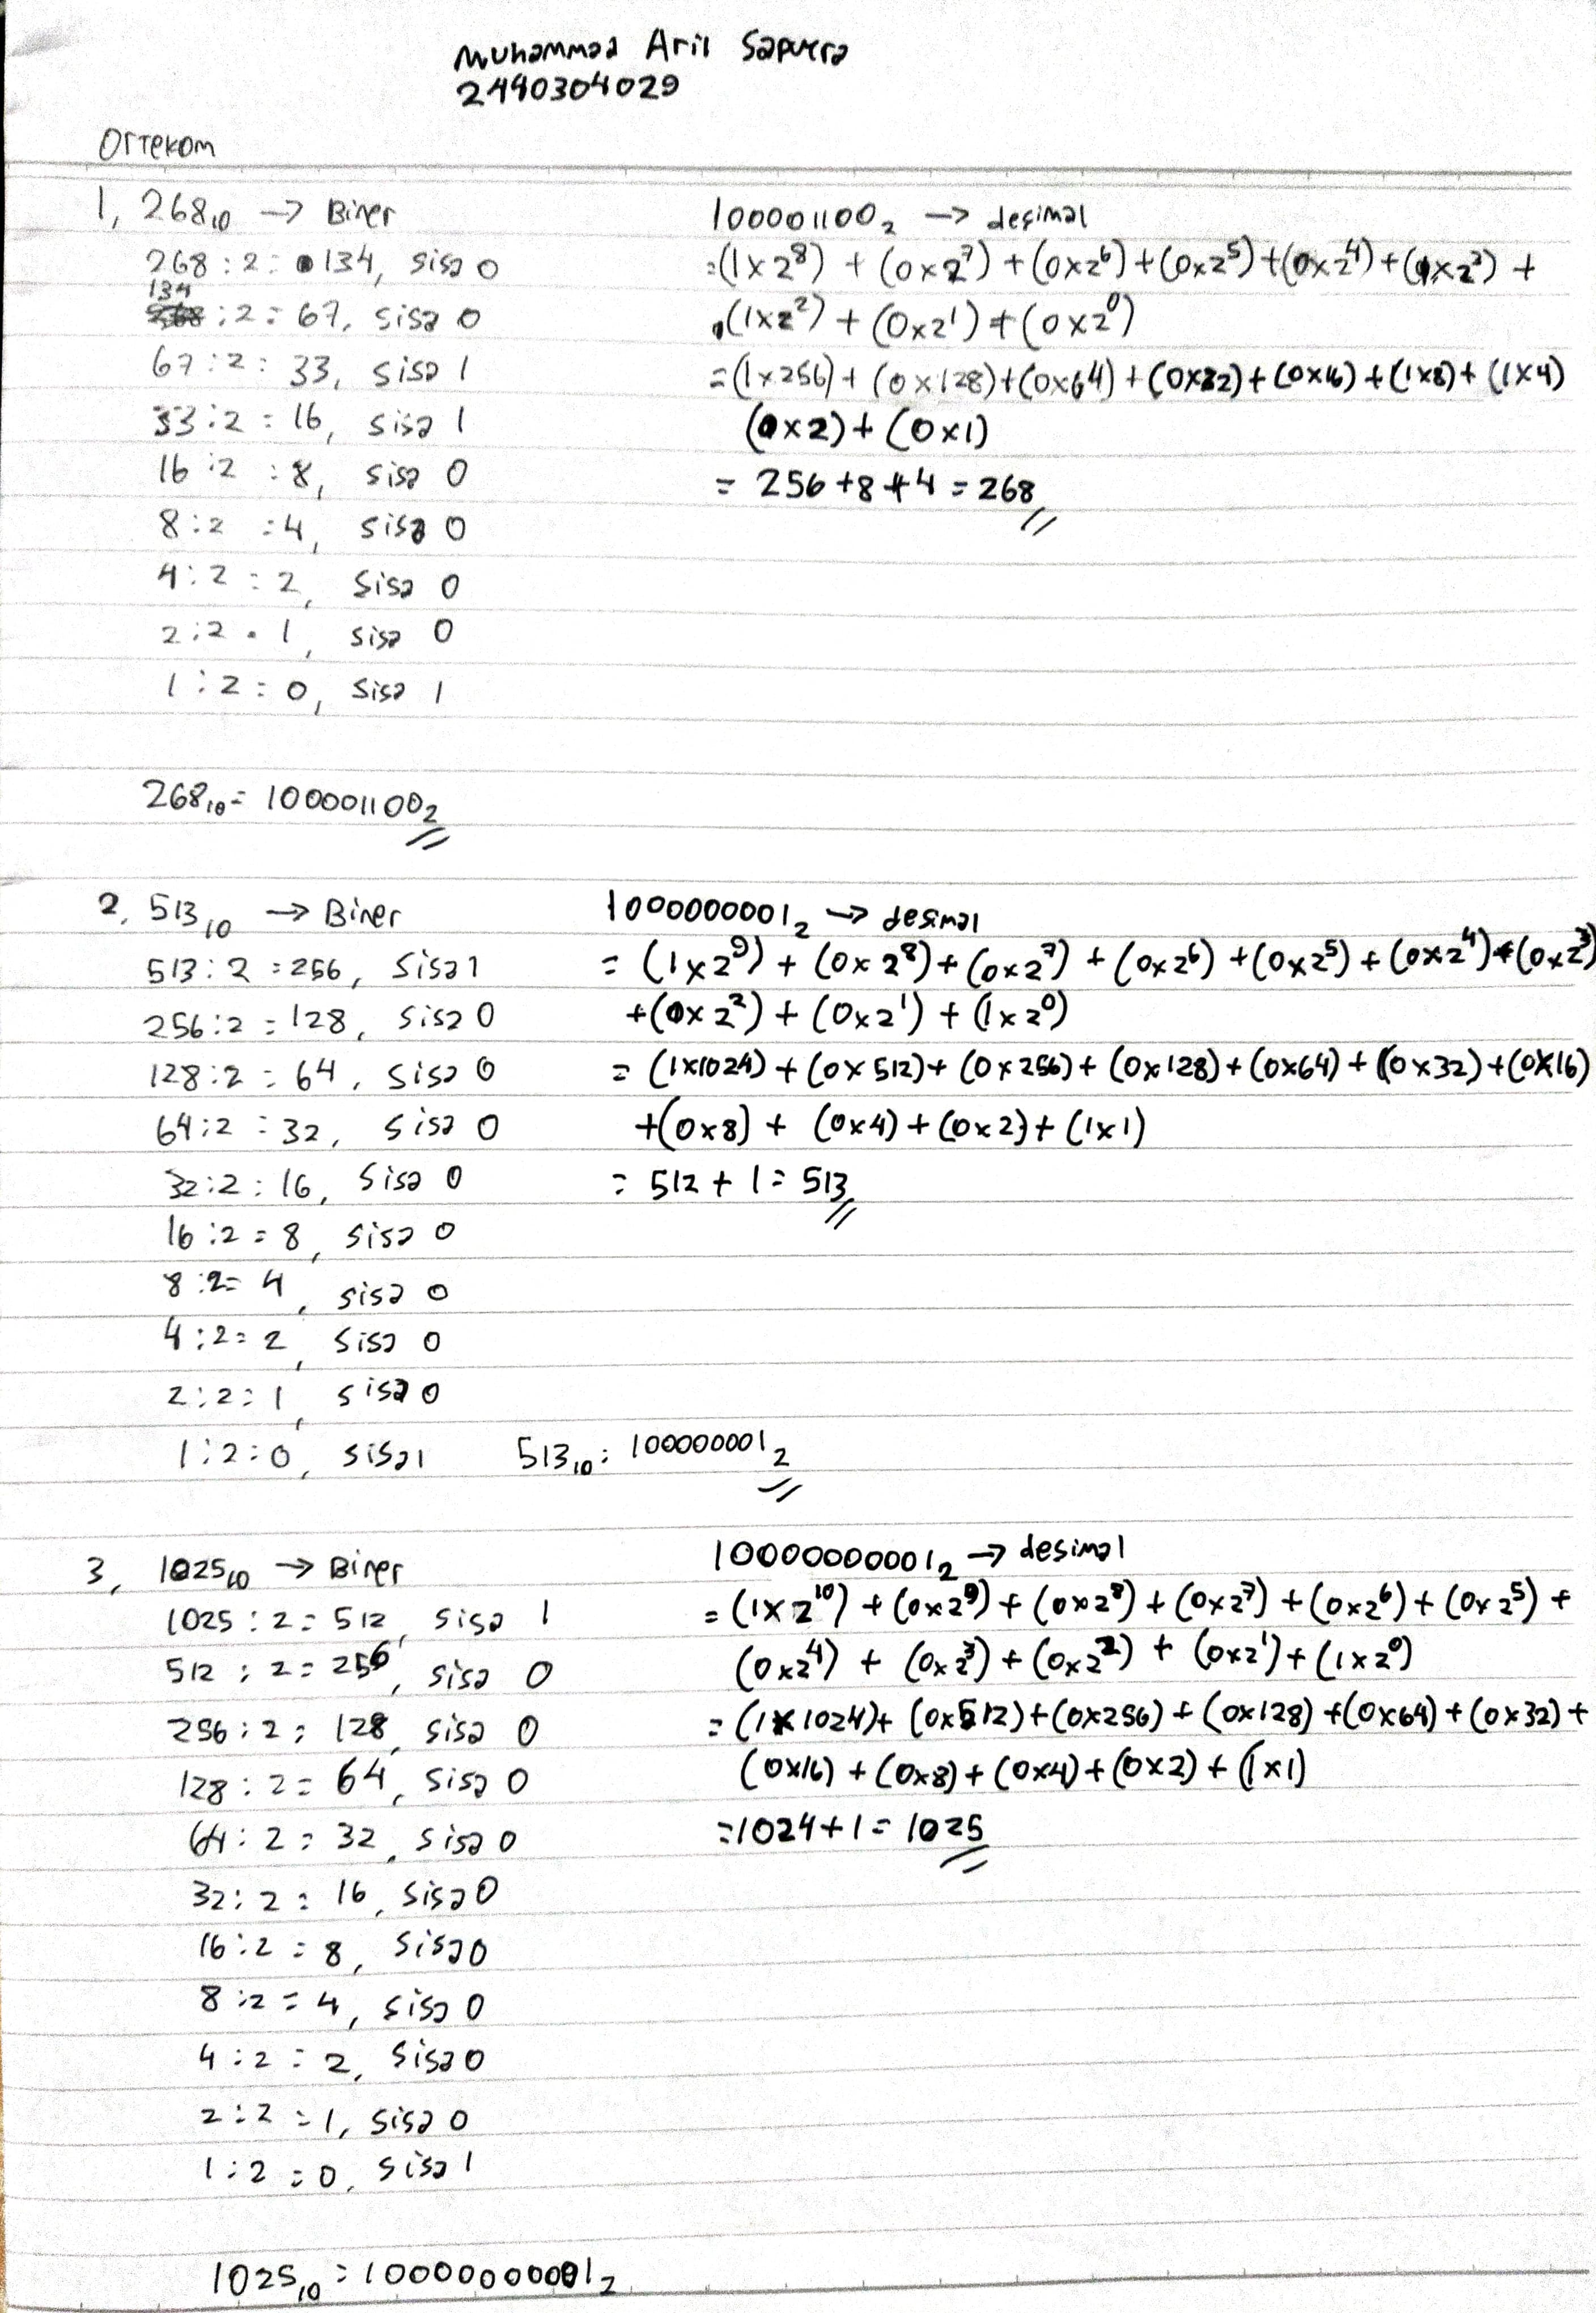 Muhammad Aril Saputra
2440304029
OrTekom
1, 268₁₀ → Biner
268 : 2 = 134, sisa 0
134 : 2 = 67, sisa 0
67 : 2 = 33, sisa 1
33 : 2 = 16, sisa 1
16 : 2 = 8, sisa 0
8 : 2 = 4, sisa 0
4 : 2 = 2, sisa 0
2 : 2 = 1, sisa 0
1 : 2 = 0, sisa 1
268₁₀ = 100001100₂
100001100₂ → desimal
= (1x2⁸) + (0x2⁷) + (0x2⁶) + (0x2⁵) + (0x2⁴) + (1x2³) +
(1x2²) + (0x2¹) + (0x2⁰)
= (1x256) + (0x128) + (0x64) + (0x32) + (0x16) + (1x8) + (1x4)
(0x2) + (0x1)
= 256 + 8 + 4 = 268
2, 513₁₀ → Biner
513 : 2 = 256, sisa 1
256 : 2 = 128, sisa 0
128 : 2 = 64, sisa 0
64 : 2 = 32, sisa 0
32 : 2 = 16, sisa 0
16 : 2 = 8, sisa 0
8 : 2 = 4, sisa 0
4 : 2 = 2, sisa 0
2 : 2 = 1, sisa 0
1 : 2 = 0, sisa 1
513₁₀ = 100000001₂
1000000001₂ → desimal
= (1x2⁹) + (0x2⁸) + (0x2⁷) + (0x2⁶) + (0x2⁵) + (0x2⁴) + (0x2³)
+ (0x2²) + (0x2¹) + (1x2⁰)
= (1x1024) + (0x512) + (0x256) + (0x128) + (0x64) + (0x32) + (0x16)
+ (0x8) + (0x4) + (0x2) + (1x1)
= 512 + 1 = 513
3, 1025₁₀ → Biner
1025 : 2 = 512, sisa 1
512 : 2 = 256, sisa 0
256 : 2 = 128, sisa 0
128 : 2 = 64, sisa 0
64 : 2 = 32, sisa 0
32 : 2 = 16, sisa 0
16 : 2 = 8, sisa 0
8 : 2 = 4, sisa 0
4 : 2 = 2, sisa 0
2 : 2 = 1, sisa 0
1 : 2 = 0, sisa 1
1025₁₀ = 10000000001₂
10000000001₂ → desimal
= (1x2¹⁰) + (0x2⁹) + (0x2⁸) + (0x2⁷) + (0x2⁶) + (0x2⁵) +
(0x2⁴) + (0x2³) + (0x2²) + (0x2¹) + (1x2⁰)
= (1x1024) + (0x512) + (0x256) + (0x128) + (0x64) + (0x32) +
(0x16) + (0x8) + (0x4) + (0x2) + (1x1)
= 1024 + 1 = 1025